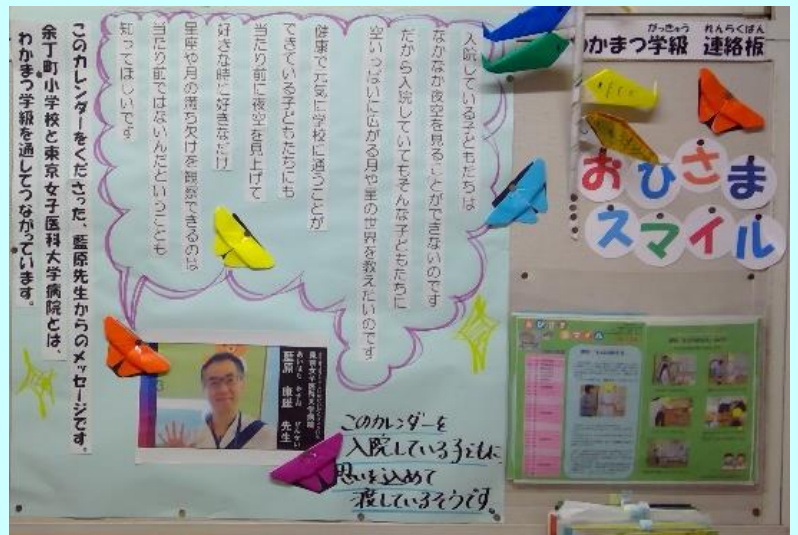 がっきゅう れんらくばん
わかまつ学級 連絡板
おひさま
スマイル
入院している子どもたちは
なかなか夜空を見ることができないのです
だから入院していてもそんな子どもたちに
空いっぱいに広がる月や星の世界を教えたいのです
健康で元気に学校に通うことが
できている子どもたちにも
当たり前に夜空を見上げて
好きな時に好きなだけ
星座や月の満ち欠けを観察できるのは
当たり前ではないんだということも
知ってほしいです
このカレンダーをくださった、藍原先生からのメッセージです。
余丁町小学校と東京女子医科大学病院とは、
わかまつ学級を通してつながっています。
東京女子医科大学病院
藍原 康雄 先生
このカレンダーを
入院している子どもに
思いを込めて
渡しているそうです。